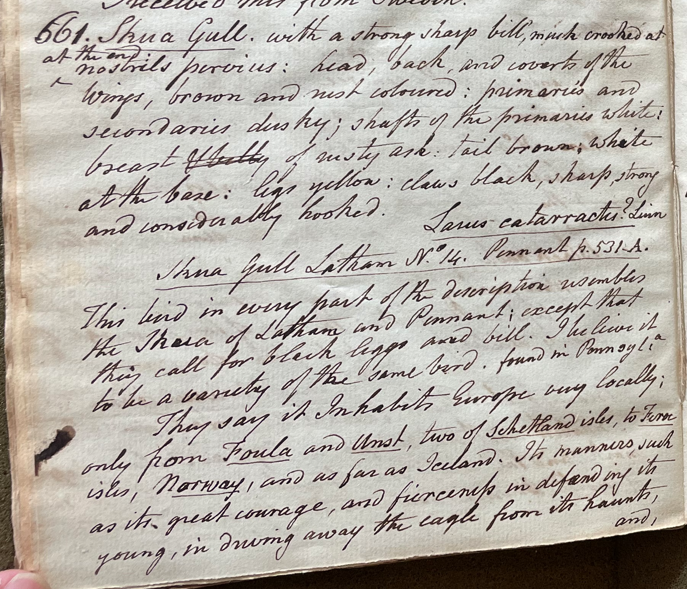 Received this from Sweden.
661. Skua Gull. with a strong sharp bill, much crooked at
at the end:
nostrils pervius: head, back, and coverts of the
wings, brown and rust coloured: primaries and
secondaries dusky; shafts of the primaries white:
breast & belly of rusty ash: tail brown; white
at the base: legs yellow: claws black, sharp, strong
and considerably hooked.
Larus catarractus? Linn
Skua Gull Latham No. 14. Pennant p. 531. A.
This bird in every part of the description resembles
the Skua of Latham and Pennant; except that
they call for black leggs and bill. I believe it
to be a variety of the same bird. found in Pennsyl:a
They say it Inhabits Europe very locally;
only from Foula and Unst, two of Schetland isles, to Feroe
isles, Norway, and as far as Iceland. Its manners, such
as its great courage, and fierceness in defending its
young, in driving away the eagle from its haunts,
and,